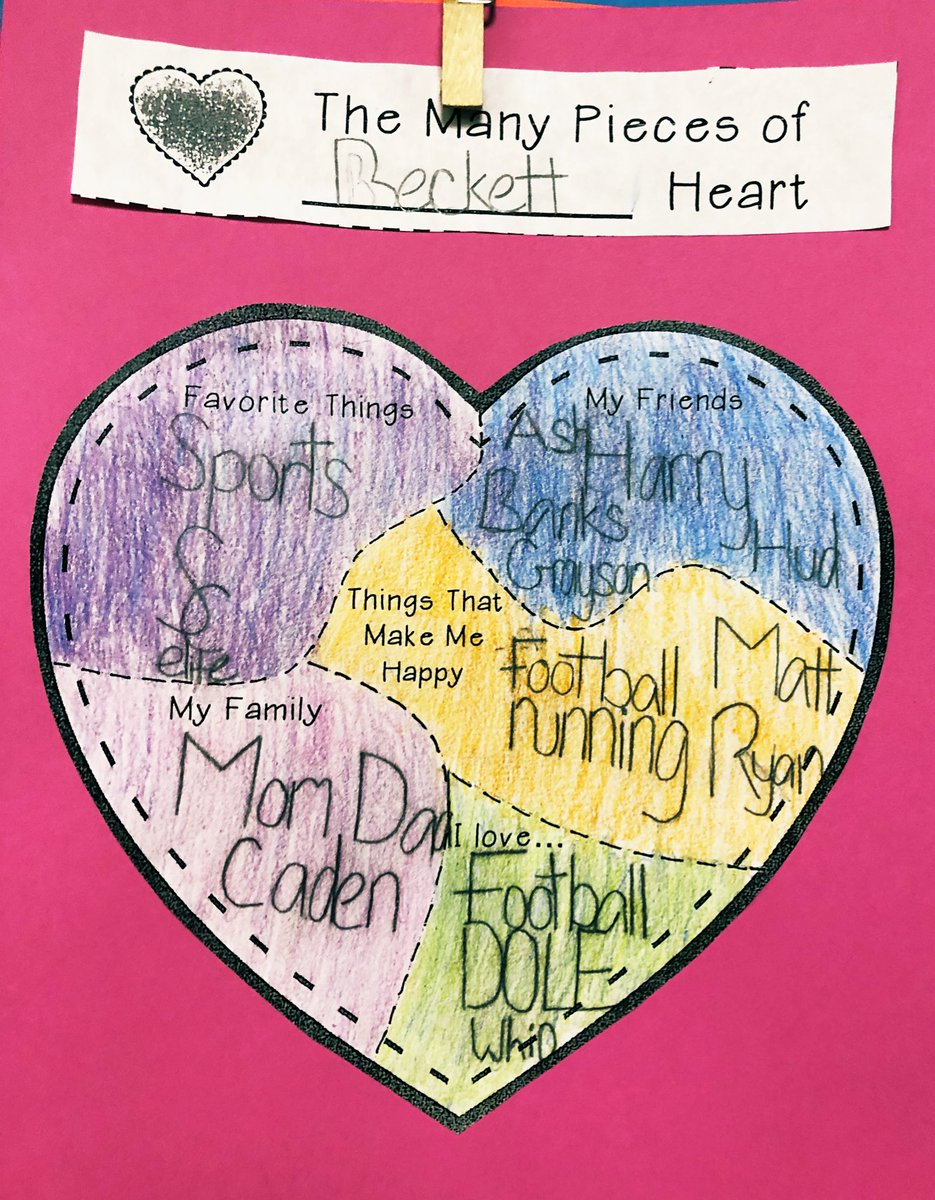 The Many Pieces of
Beckett Heart
Favorite Things
Sports
S
C
elite
My Friends
Ash Harry
Banks
Hud
Grayson
Things That
Make Me
Happy
Football Matt
running Ryan
My Family
Mom Dad
Caden
I love...
Football
DOLE
Whip